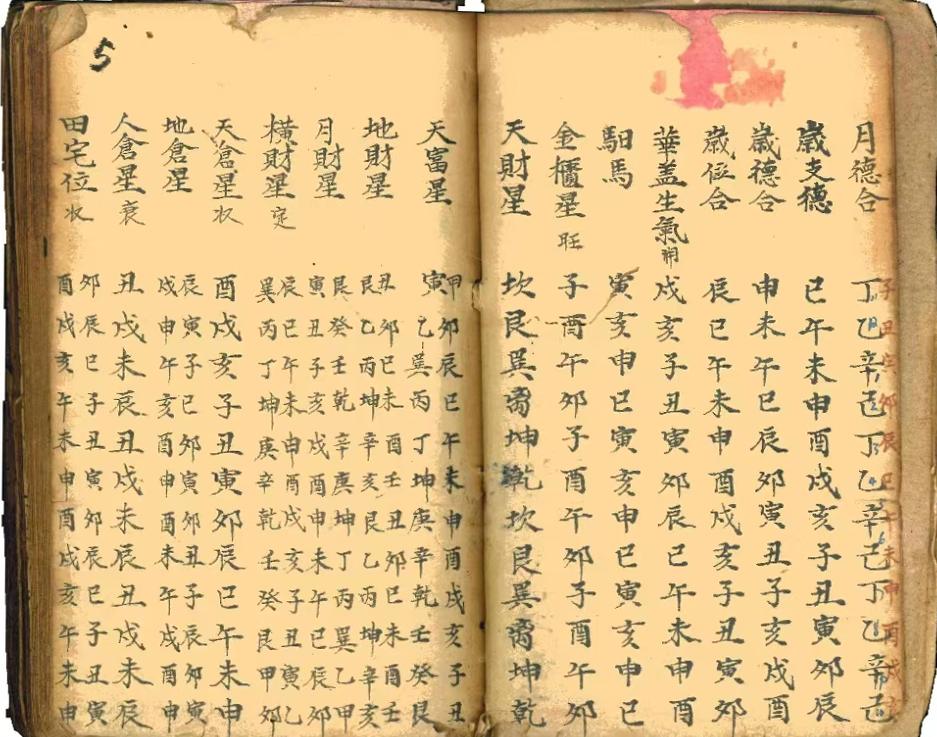 子丑寅卯辰巳午未申酉戌亥
月德合 丁乙辛己丁乙辛己丁乙辛己
嵗支德 巳午未申酉戌亥子丑寅卯辰
嵗德合 申未午巳辰卯寅丑子亥戌酉
嵗位合 辰巳午未申酉戌亥子丑寅卯
華盖生氣 開 戌亥子丑寅卯辰巳午未申酉
馹馬 寅亥申巳寅亥申巳寅亥申巳
金櫃星 旺 子酉午卯子酉午卯子酉午卯
天財星 坎艮巽离坤乾坎艮巽离坤乾
5
天富星 甲卯辰巳午未申酉戌亥子丑
寅乙巽丙丁坤庚辛乾壬癸艮
地財星 丑卯巳未酉壬丑卯巳未酉壬
艮乙丙坤辛亥艮乙丙坤辛亥
月財星 艮癸壬乾辛庚坤丁丙巽乙甲
寅丑子亥戌酉申未午巳辰卯
橫財星 定 辰巳午未申酉戌亥子丑寅乙
巽丙丁坤庚辛乾壬癸艮甲卯
天倉星 收 酉戌亥子丑寅卯辰巳午未申
地倉星 辰寅子巳卯寅卯丑子辰卯寅
戌申午亥酉申酉未午戌酉申
人倉星 衰 丑戌未辰丑戌未辰丑戌未辰
田宅位 收 卯辰巳子丑寅卯辰巳子丑寅
酉戌亥午未申酉戌亥午未申